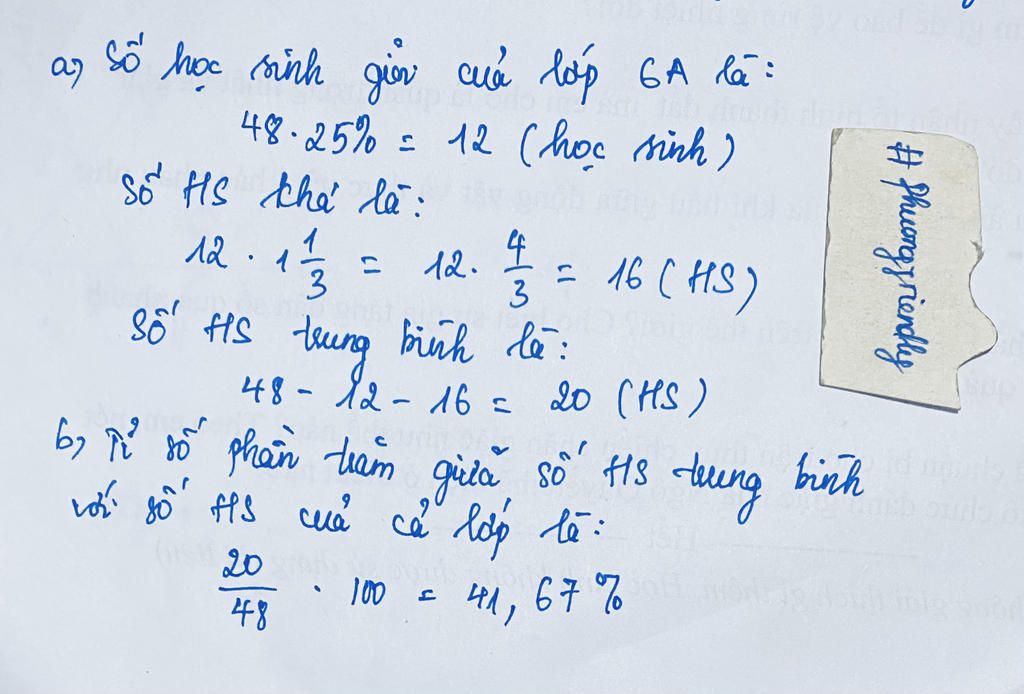 a, Số học sinh giỏi của lớp 6A là:
48 . 25% = 12 (học sinh)
Số HS khá là:
12 . 1 1/3 = 12 . 4/3 = 16 (HS)
Số HS trung bình là:
48 - 12 - 16 = 20 (HS)
b, Tỉ số phần trăm giữa số HS trung bình
với số HS của cả lớp là:
20/48 . 100 = 41,67%
#phuongfriendly